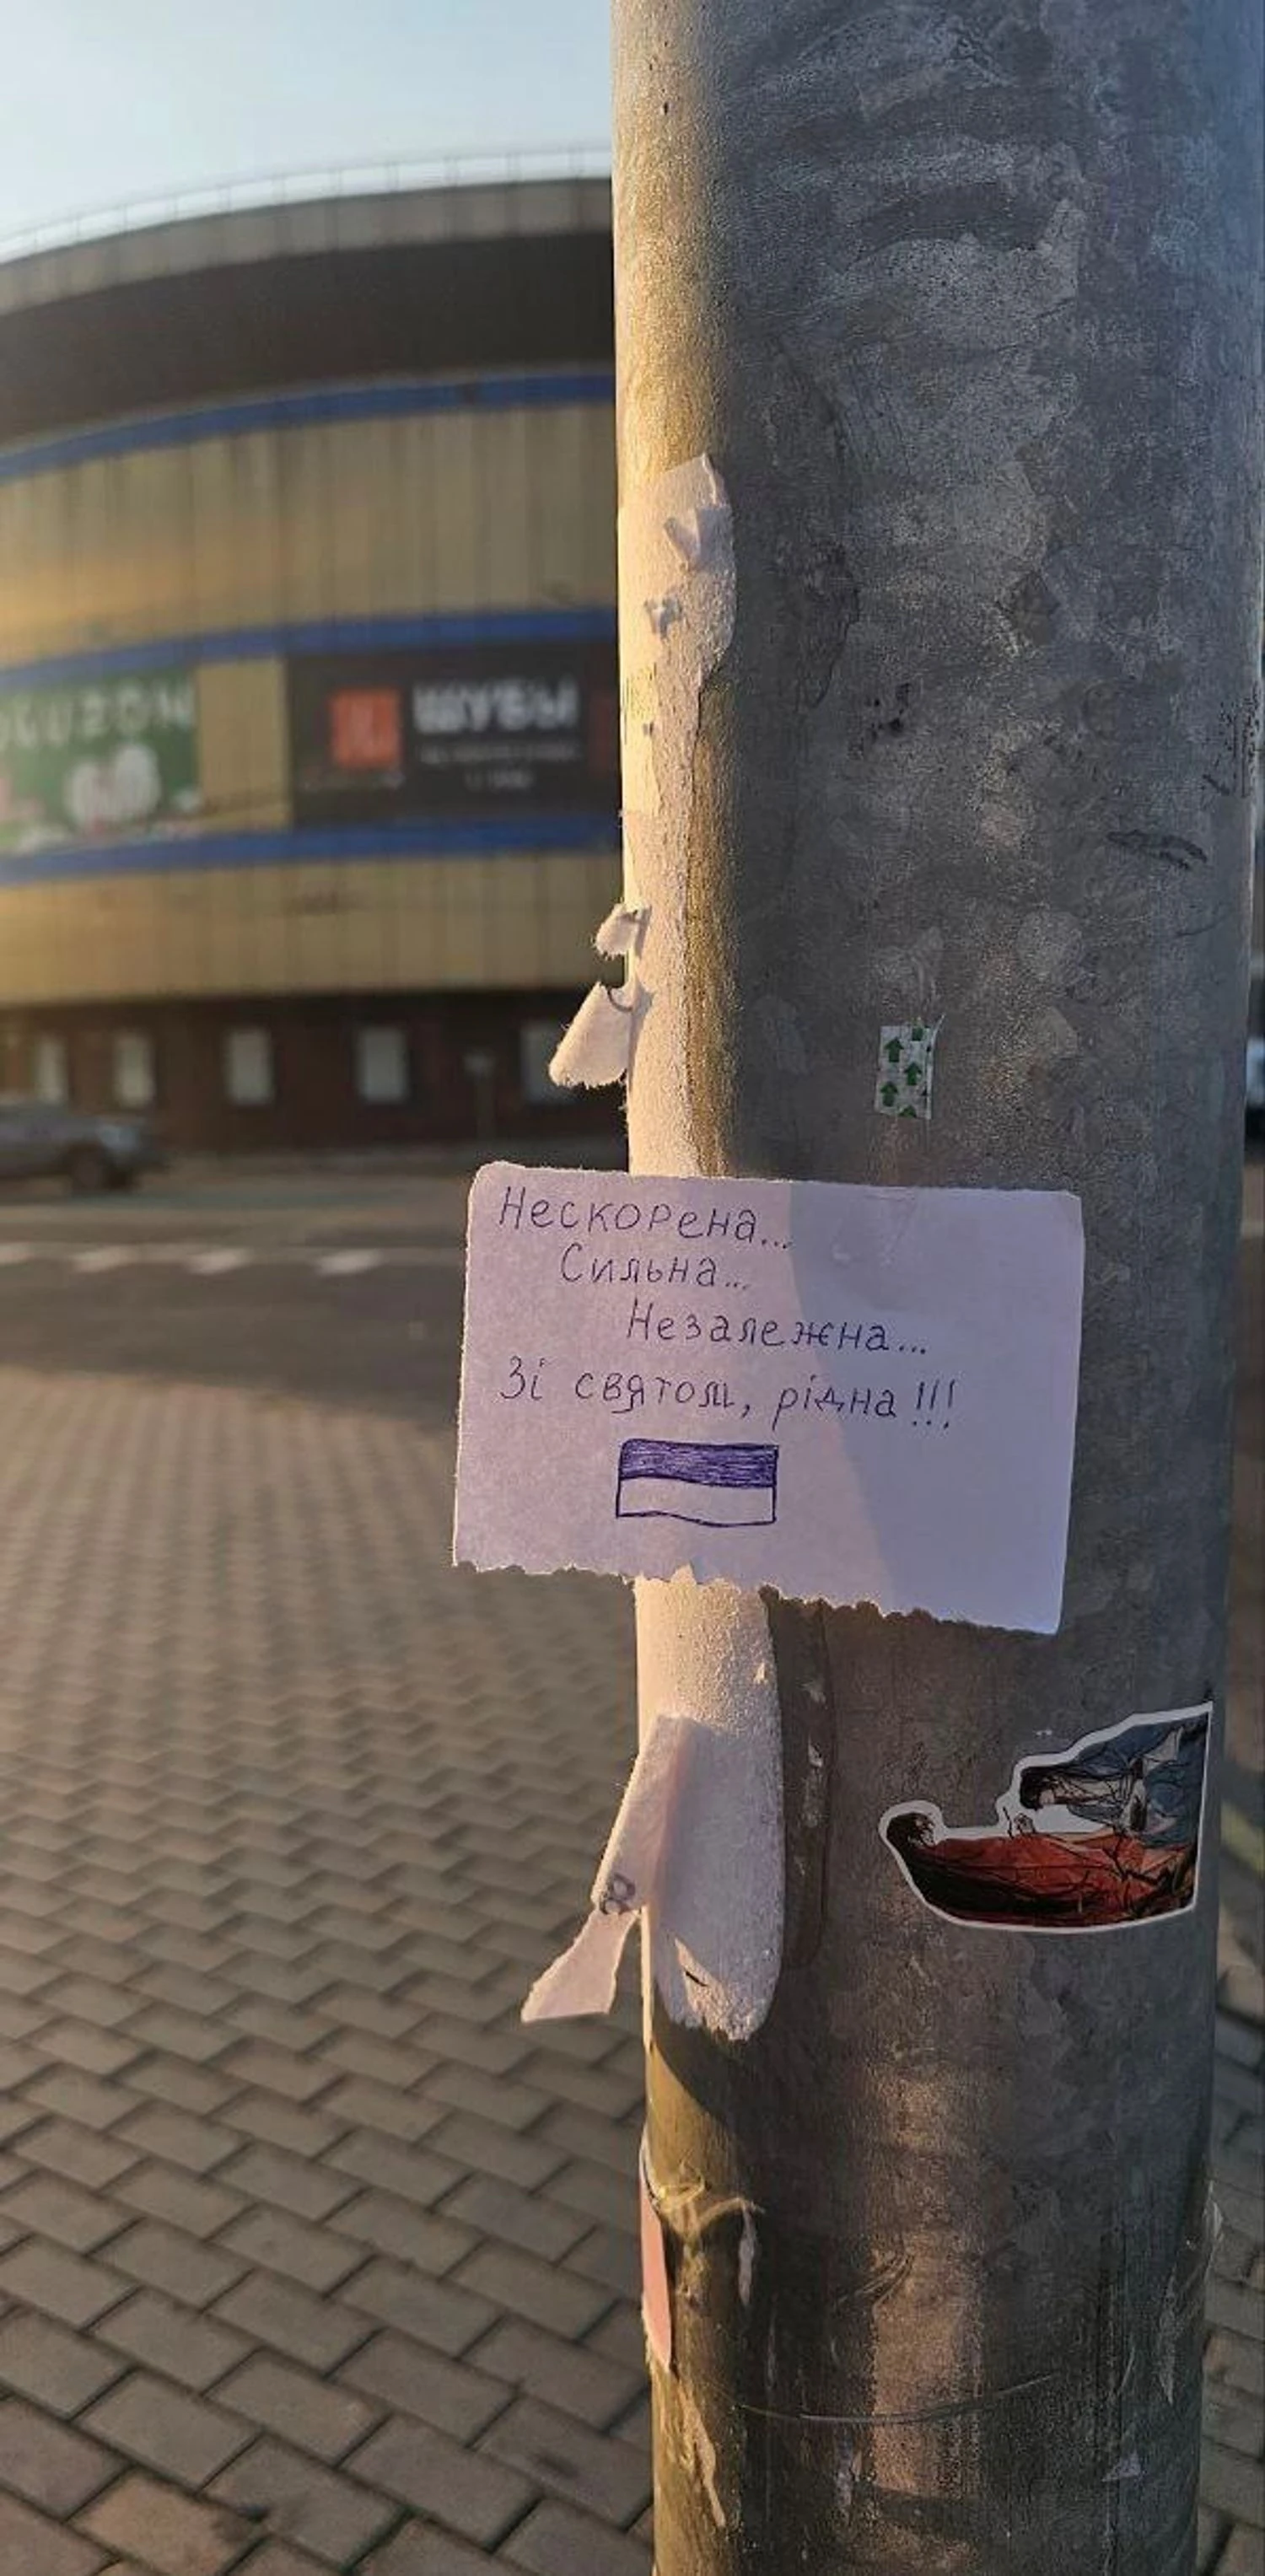 ШУБЫ
Нескорена...
Сильна...
Незалежна...
Зі святом, рідна!!!